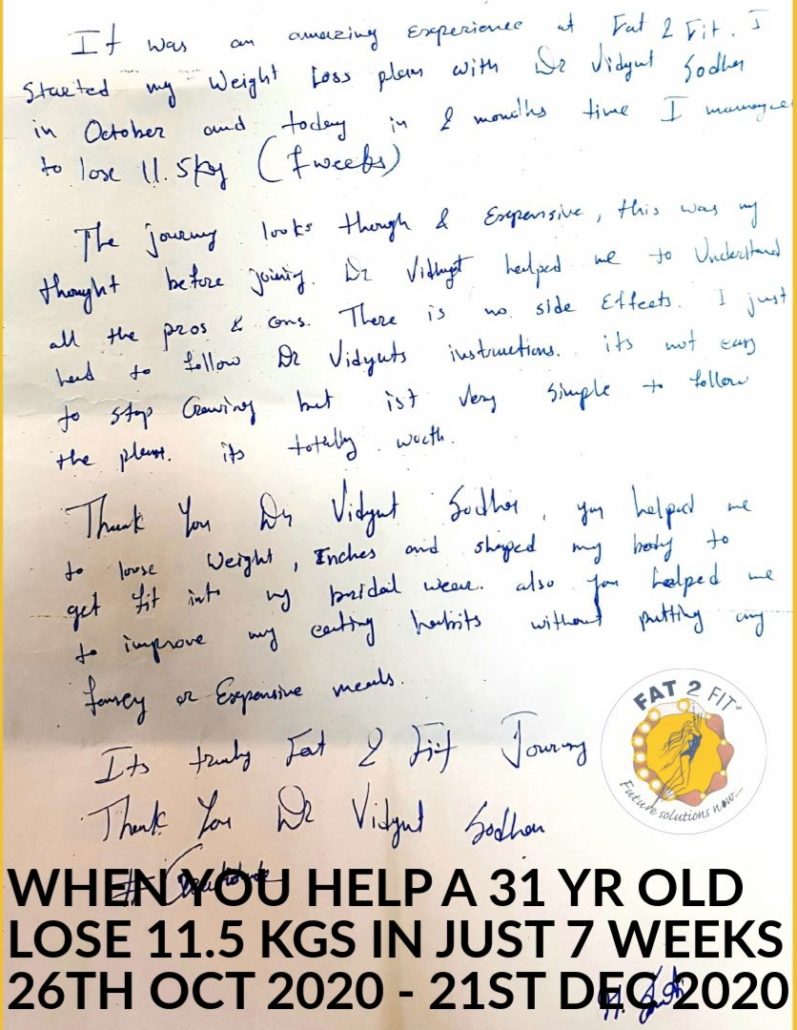 It was an amazing Experience at Fat 2 Fit. I
Started my Weight Loss plan with Dr Vidyut Sodha
in October and today in 2 months time I
to lose 11.5kg (7 weeks)
The journy looks though & Expensive, this was my
thought before joining. Dr Vidhyut helped me to Understand
all the pros & cons. There is no side Effects. I just
had to follow Dr Vidyuts instructions. its not easy
to stop Craving but ist very simple to follow
the plan. its totally worth.
Thank You Dr Vidyut Sodha, you helped me
to loose Weight, Inches and shaped my body to
get fit into my bridal wear. also you helped me
to improve my eating habits without putting any
fancy or Expensive meals.
Its truly Fat 2 Fit Journy
Thank You Dr Vidyut Sodha
FAT 2 FIT
Future solutions now....
WHEN YOU HELP A 31 YR OLD
LOSE 11.5 KGS IN JUST 7 WEEKS
26TH OCT 2020 - 21ST DEC 2020